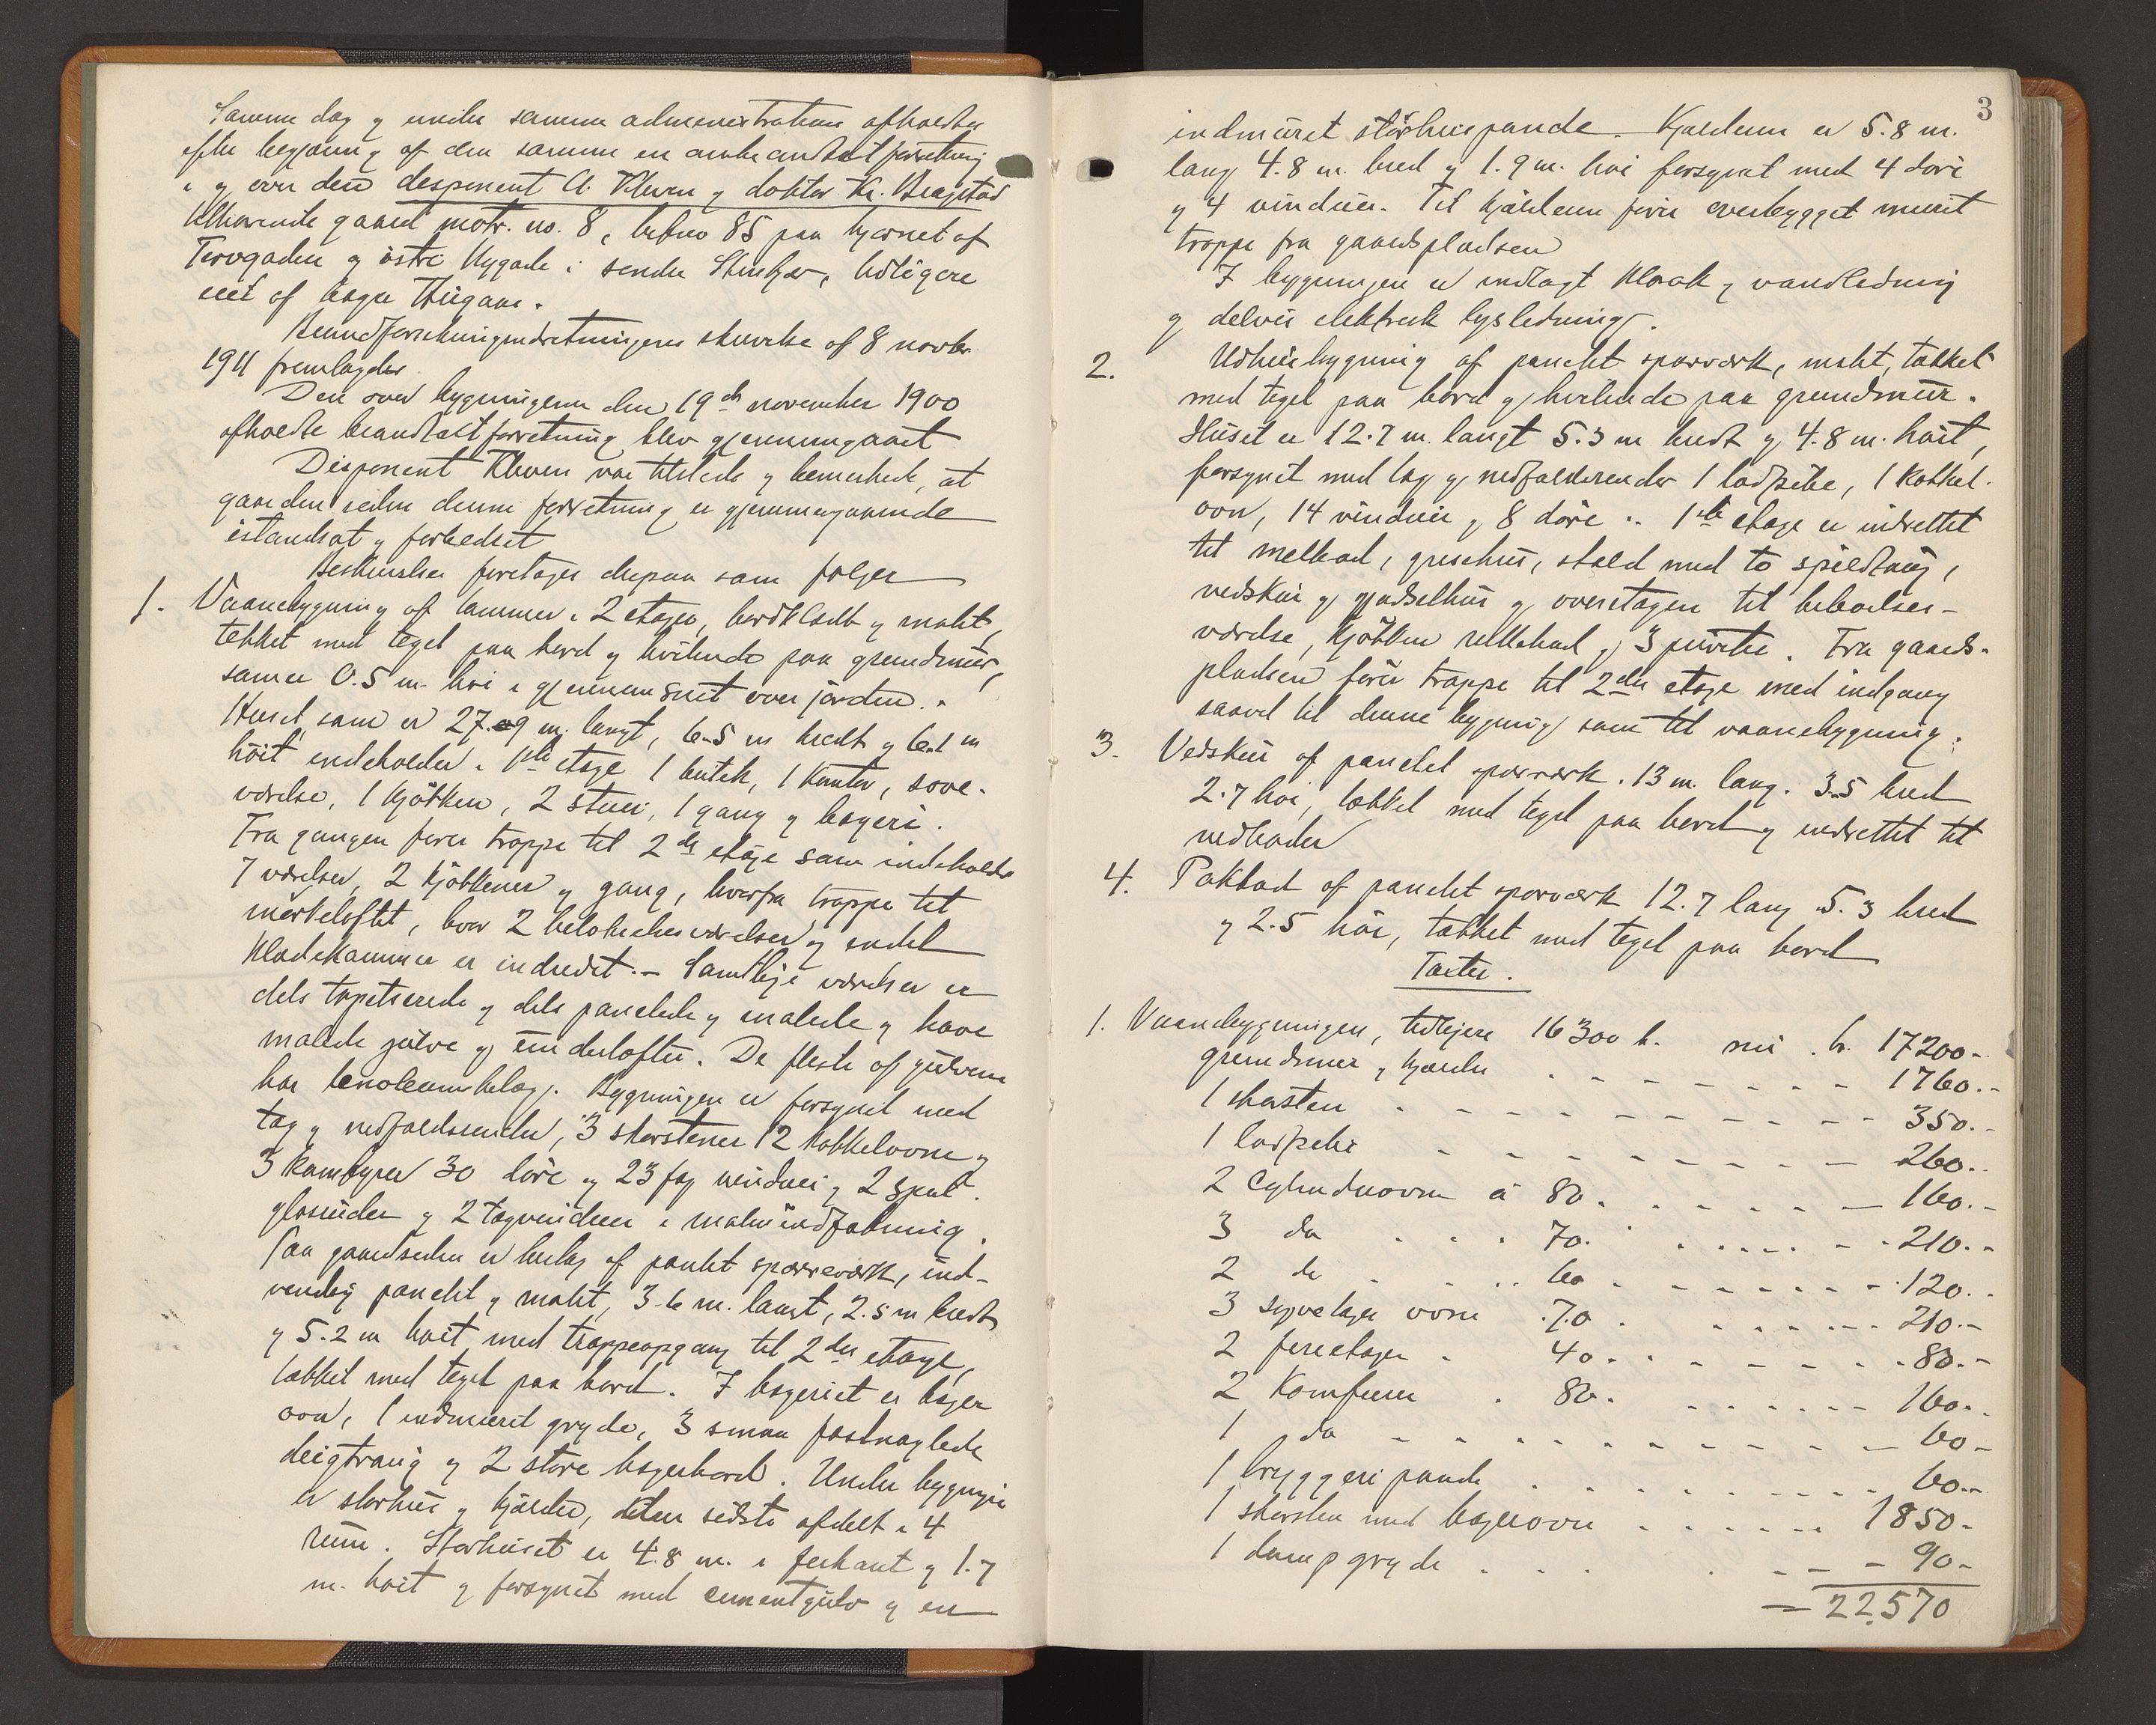 Samme dag og under samme administration afholdtes
efter begjæring af den samme en ombrandtaxtforretning
i og over den disponent A. Kleven og doktor Kr. Bragstad
tilhørende gaard matr. no. 8, brbno 85 paa hjørnet af
Torvgaden og østre Nygade i søndre Stenkjær, tidligere
eiet af bager Haugan.
Brandforsikringsindretningens skrivelse af 8 novbr.
1911 fremlagdes
Den over bygningerne den 19de november 1900
afholdte brandtaxtforretning blev gjennemgaaet
Disponent Kleven var tilstede og bemerkede, at
gaarden siden denne forretning er gjennemgaaende
istandsat og forbedret
Beskrivelse foretages derpaa som følger
1. Vaanebygning af tømmer i 2 etager, bordklædt og malt,
tækket med tegel paa bord og hvilende paa grundmur,
som er 0.5 m. høi i gjennemsnit over jorden.
Huset, som er 27.9 m. langt, 6.5 m bredt og 6.1 m
høit indeholder i 1ste etage 1 butik, 1 kontor, sove-
værelse, 1 kjøkken, 2 stuer, 1 gang og bageri.
Fra gangen fører trappe til 2de etage som indeholder
7 værelser, 2 kjøkkener og gang, hvorfra trappe til
mørkeloftet, hvor 2 beboelsesværelser og endel
klædekammer er indredet. - Samtlige værelser er
dels tapetserede og dels panelede og malede og have
malede gulve og underlofter. De fleste af gulvene
har linoleumsbelæg. Bygningen er forsynet med
tag og nedfaldsrender, 3 skorstener 12 kakkelovne og
3 komfyrer 30 døre og 23 fag vinduer og 2 speil-
glasruder og 2 tagvinduer i malmindfatning.
Paa gaardsiden er bislag af panelt sparreværk, ind-
vendig panelet og malt, 3.6 m. langt, 2.5 m bredt
og 5.2 m høit med trappeopgang til 2den etage,
tækket med tegel paa bord. I bageriet er bager
ovn, 1 indmuret gryde, 3 smaa fastnaglede
deigtraug og 2 store bagerbord. Under bygningen
er størhus og kjælder, den sidste afdelt i 4
rum. Størhuset er 4.8 m. i firkant og 1.7
m. høit og forsynet med cementgulv og en
3
indmuret størhuspande. Kjælderen er 5.8 m.
lang 4.8 m. bred og 1.9 m. høi forsynet med 4 døre
og 4 vinduer. Til kjælderen fører overbygget muret
trappe fra gaardspladsen
I bygningen er indlagt kloak og vandledning
og delvis elektrisk lysledning.
2. Udhusbygning af panelt sparværk, malt, tækket
med tegel paa bord og hvilende paa grundmur.
Huset er 12.7 m. langt 5.3 m bredt og 4.8 m. høit,
forsynet med tag og nedfaldsrender 1 ladpibe, 1 kakkel-
ovn, 14 vinduer og 8 døre. 1ste etage er indrettet
til melbod, grisehus, stald med to spildtaug,
vedskur og gjødselhus og overetagen til beboelses-
værelse, kjøkken rullebod og 3 priveter. Fra gaards-
pladsen fører trappe til 2den etage med indgang
saavel til denne bygning som til vaanebygning.
3. Vedskur af panelet sparværk. 13 m. lang. 3.5 bred
2.7 høi, tækket med tegel paa bord og indrettet til
vedboder
4. Pakbod af panelet sparværk 12.7 lang 5.3 bred
og 2.5 høi, tækket med tegel paa bord
Taxter.
1. Vaanebygningen, tidligere 16300 kr. nu . kr. 17200-
grundmur og kjælder . - - - - - - - 1760.-
1 skorsten . - - - - - - - - - 350.-
1 ladpibe - - - - - - - - 260.-
2 Cylinderovne à 80. . . . . - - 160.-
3 do . . . 70. . . . . . - - 210.-
2 do . . . 60 . - - - - - - 120.-
3 syvetages ovne . 70 . . . . . . - - 210.-
2 fireetages . 40 . . - - - - - 80.-
2 Komfurer . 80. . . . . . - - 160.-
1 do - - . . . . . . . - - 60-
1 bryggeripande . . . . . . . . . 60.-
1 skorsten med bagerovn . . . . . . 1850-
1 dampgryde . . . . . - - 90-
= 22.570